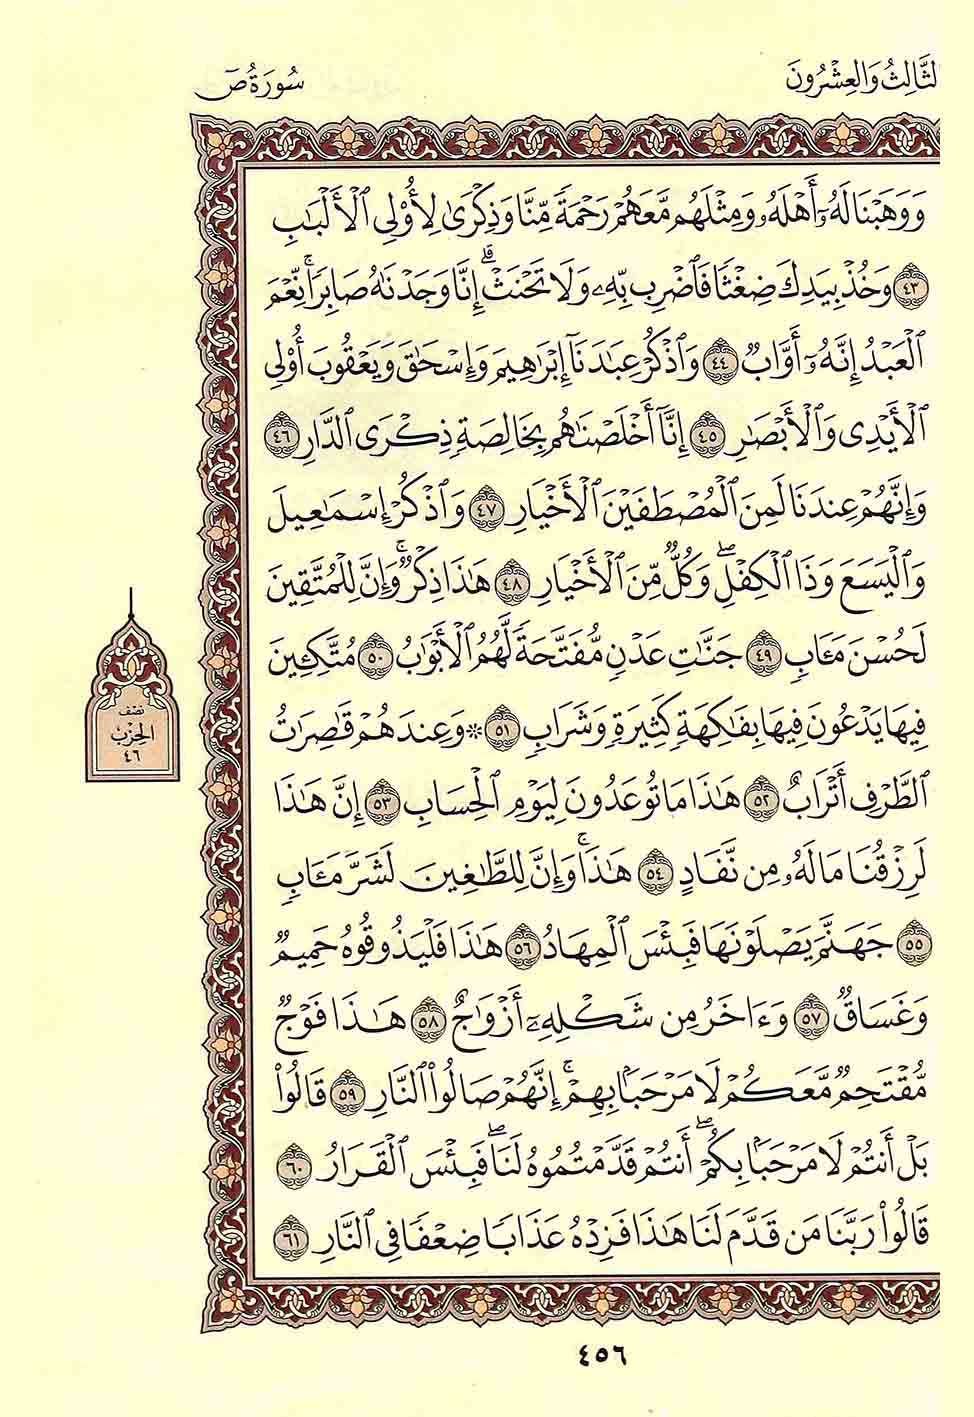 لثَّالِثُ وَالعِشْرُونَ
سُورَةُ صٓ
وَوَهَبْنَا لَهُۥٓ أَهْلَهُۥ وَمِثْلَهُم مَّعَهُمْ رَحْمَةً مِّنَّا وَذِكْرَىٰ لِأُوْلِى ٱلْأَلْبَٰبِ
٤٣ وَخُذْ بِيَدِكَ ضِغْثًا فَٱضْرِب بِّهِۦ وَلَا تَحْنَثْ ۗ إِنَّا وَجَدْنَٰهُ صَابِرًا ۚ نِّعْمَ
ٱلْعَبْدُ إِنَّهُۥٓ أَوَّابٌ ٤٤ وَٱذْكُرْ عِبَٰدَنَآ إِبْرَٰهِيمَ وَإِسْحَٰقَ وَيَعْقُوبَ أُوْلِى
ٱلْأَيْدِى وَٱلْأَبْصَٰرِ ٤٥ إِنَّآ أَخْلَصْنَٰهُم بِخَالِصَةٍ ذِكْرَى ٱلدَّارِ ٤٦
وَإِنَّهُمْ عِندَنَا لَمِنَ ٱلْمُصْطَفَيْنَ ٱلْأَخْيَارِ ٤٧ وَٱذْكُرْ إِسْمَٰعِيلَ
وَٱلْيَسَعَ وَذَا ٱلْكِفْلِ ۖ وَكُلٌّ مِّنَ ٱلْأَخْيَارِ ٤٨ هَٰذَا ذِكْرٌ ۚ وَإِنَّ لِلْمُتَّقِينَ
لَحُسْنَ مَـَٔابٍ ٤٩ جَنَّٰتِ عَدْنٍ مُّفَتَّحَةً لَّهُمُ ٱلْأَبْوَٰبُ ٥٠ مُتَّكِـِٔينَ
فِيهَا يَدْعُونَ فِيهَا بِفَٰكِهَةٍ كَثِيرَةٍ وَشَرَابٍ ٥١ ۞ وَعِندَهُمْ قَٰصِرَٰتُ
ٱلطَّرْفِ أَتْرَابٌ ٥٢ هَٰذَا مَا تُوعَدُونَ لِيَوْمِ ٱلْحِسَابِ ٥٣ إِنَّ هَٰذَا
لَرِزْقُنَا مَا لَهُۥ مِن نَّفَادٍ ٥٤ هَٰذَا ۚ وَإِنَّ لِلطَّٰغِينَ لَشَرَّ مَـَٔابٍ
٥٥ جَهَنَّمَ يَصْلَوْنَهَا فَبِئْسَ ٱلْمِهَادُ ٥٦ هَٰذَا فَلْيَذُوقُوهُ حَمِيمٌ
وَغَسَّاقٌ ٥٧ وَءَاخَرُ مِن شَكْلِهِۦٓ أَزْوَٰجٌ ٥٨ هَٰذَا فَوْجٌ
مُّقْتَحِمٌ مَّعَكُمْ لَا مَرْحَبًۢا بِهِمْ ۚ إِنَّهُمْ صَالُوا۟ ٱلنَّارِ ٥٩ قَالُوا۟
بَلْ أَنتُمْ لَا مَرْحَبًۢا بِكُمْ ۖ أَنتُمْ قَدَّمْتُمُوهُ لَنَا ۖ فَبِئْسَ ٱلْقَرَارُ ٦٠
قَالُوا۟ رَبَّنَا مَن قَدَّمَ لَنَا هَٰذَا فَزِدْهُ عَذَابًا ضِعْفًا فِى ٱلنَّارِ ٦١
نصف
الحِزْب
٤٦
٤٥٦